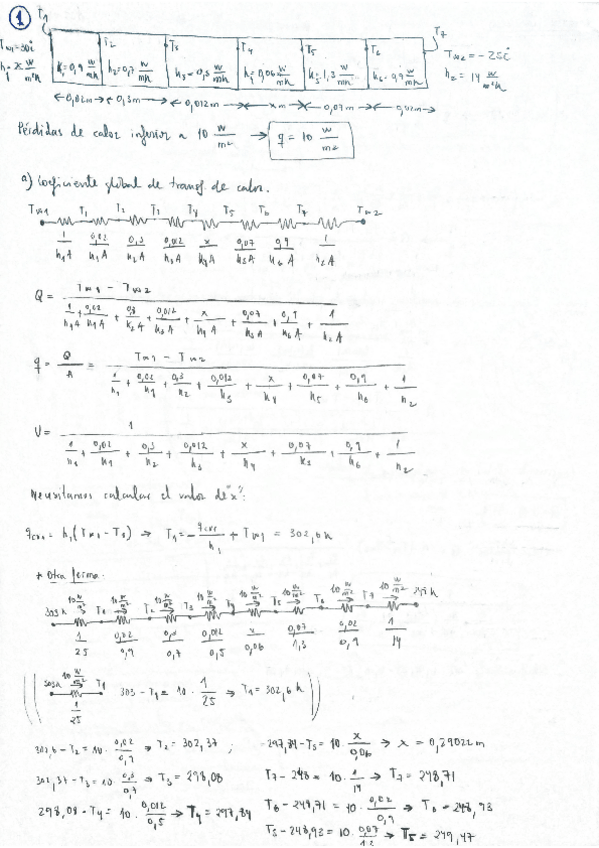 1
T1 T2 T3 T4 T5 T6 T7
T∞1=30°C k1=0,9 W/mK k2=0,7 W/mK k3=0,5 W/mK k4=0,06 W/mK k5=1,3 W/mK k6=0,9 W/mK T∞2=-25°C
h2=14 W/m²K
0,02m 0,3m 0,012m xm 0,07m 0,02m
Pérdidas de calor inferior a 10 W/m² → q = 10 W/m²
a) Coeficiente global de transf. de calor.
T∞1 T1 T2 T3 T4 T5 T6 T7 T∞2
1/h1A 0,02/k1A 0,3/k2A 0,012/k3A x/k4A 0,07/k5A 0,9/k6A 1/h2A
Q = T∞1 - T∞2 / 1/h1A + 0,02/k1A + 0,3/k2A + 0,012/k3A + x/k4A + 0,07/k5A + 0,9/k6A + 1/h2A
q = Q/A = T∞1 - T∞2 / 1/h1 + 0,02/k1 + 0,3/k2 + 0,012/k3 + x/k4 + 0,07/k5 + 0,9/k6 + 1/h2
U = 1 / 1/h1 + 0,02/k1 + 0,3/k2 + 0,012/k3 + x/k4 + 0,07/k5 + 0,9/k6 + 1/h2
Necesitamos calcular el valor de "x":
= h1(T∞1 - T1) → T1 = - /h1 + T∞1 = 302,6 K
* Otra forma:
303K 10 W/m² T1 10 W/m² T2 10 W/m² T3 10 W/m² T4 10 W/m² T5 10 W/m² T6 10 W/m² T7 10 W/m²
1/25 0,02/0,9 0,3/0,7 0,012/0,5 x/0,06 0,07/1,3 0,02/0,9 1/14
303K 10 W/m² T1 303 - T1 = 10 · 1/25 → T1 = 302,6 K
1/25
302,6 - T2 = 10 · 0,02/0,9 → T2 = 302,37 ; 297,84 - T5 = 10 · x/0,06 → x = 0,29022 m
302,37 - T3 = 10 · 0,3/0,7 → T3 = 298,08 T7 - 248 = 10 · 1/14 → T7 = 248,71
298,08 - T4 = 10 · 0,012/0,5 → T4 = 297,84 T6 - 248,71 = 10 · 0,02/0,9 → T6 = 248,93
T5 - 248,93 = 10 · 0,07/1,3 → T5 = 249,47